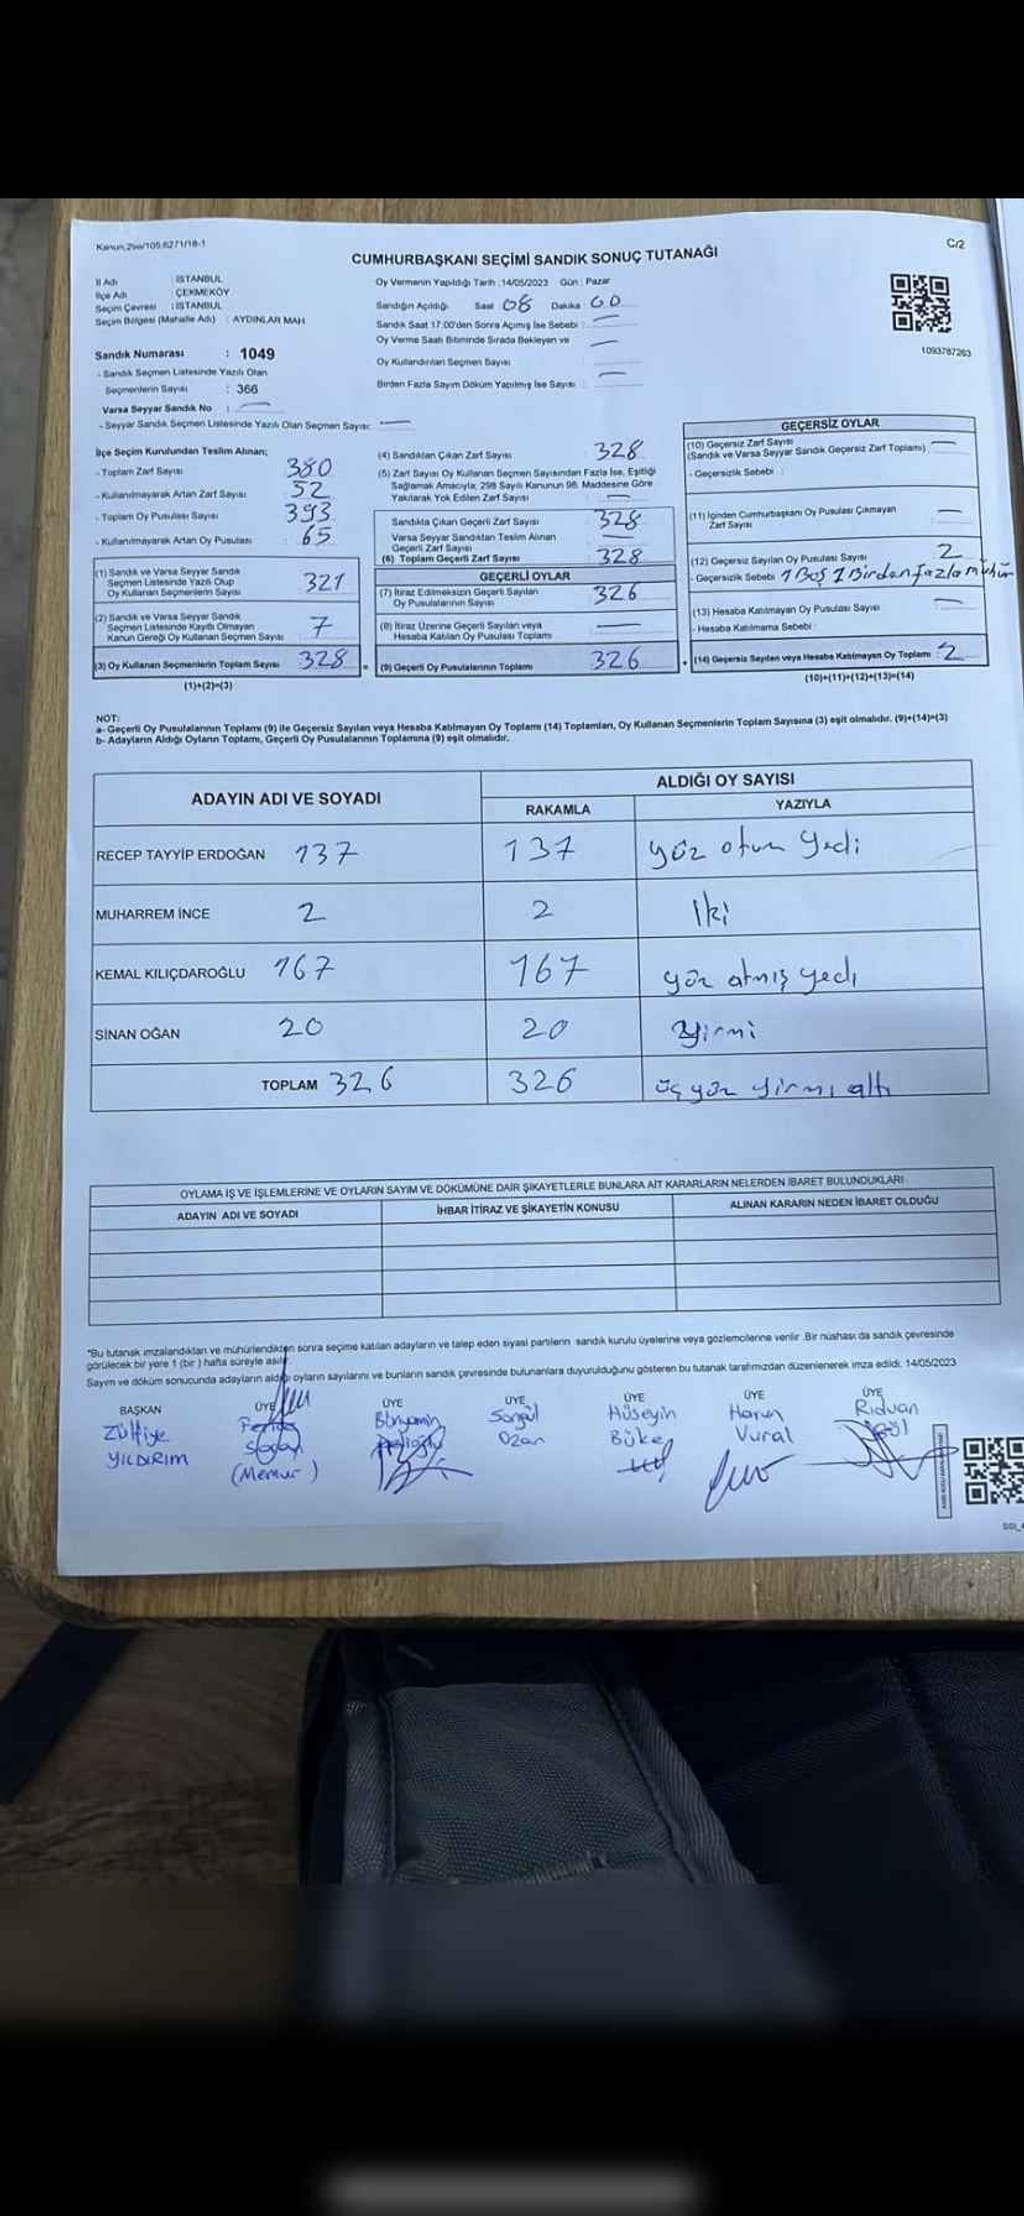 Kanun:298/105.6271/18-1
C/2
CUMHURBAŞKANI SEÇİMİ SANDIK SONUÇ TUTANAĞI
İl Adı : İSTANBUL
İlçe Adı : ÇEKMEKÖY
Seçim Çevresi : İSTANBUL
Seçim Bölgesi (Mahalle Adı) : AYDINLAR MAH.
Sandık Numarası : 1049
- Sandık Seçmen Listesinde Yazılı Olan
Seçmenlerin Sayısı : 366
Varsa Seyyar Sandık No :
- Seyyar Sandık Seçmen Listesinde Yazılı Olan Seçmen Sayısı:
Oy Vermenin Yapıldığı Tarih :14/05/2023 Gün : Pazar
Sandığın Açıldığı Saat 08 Dakika : 00
Sandık Saat 17:00'den Sonra Açımış İse Sebebi :
Oy Verme Saati Bitiminde Sırada Bekleyen ve
Oy Kullandırılan Seçmen Sayısı
Birden Fazla Sayım Döküm Yapılmış İse Sayısı :
1093787263
İlçe Seçim Kurulundan Teslim Alınan;
- Toplam Zarf Sayısı 380
- Kullanılmayarak Artan Zarf Sayısı 52
- Toplam Oy Pusulası Sayısı 393
- Kullanılmayarak Artan Oy Pusulası : 65
(1) Sandık ve Varsa Seyyar Sandık
Seçmen Listesinde Yazılı Olup
Oy Kullanan Seçmenlerin Sayısı 321
(2) Sandık ve Varsa Seyyar Sandık
Seçmen Listesinde Kayıtlı Olmayan
Kanun Gereği Oy Kullanan Seçmen Sayısı 7
(3) Oy Kullanan Seçmenlerin Toplam Sayısı 328
(1)+(2)=(3)
(4) Sandıktan Çıkan Zarf Sayısı 328
(5) Zarf Sayısı Oy Kullanan Seçmen Sayısından Fazla İse, Eşitliği
Sağlamak Amacıyla; 298 Sayılı Kanunun 98. Maddesine Göre
Yakılarak Yok Edilen Zarf Sayısı
Sandıkta Çıkan Geçerli Zarf Sayısı 328
Varsa Seyyar Sandıktan Teslim Alınan
Geçerli Zarf Sayısı
(6) Toplam Geçerli Zarf Sayısı 328
GEÇERLİ OYLAR
(7) İtiraz Edilmeksizin Geçerli Sayılan
Oy Pusulalarının Sayısı 326
(8) İtiraz Üzerine Geçerli Sayılan veya
Hesaba Katılan Oy Pusulası Toplamı
(9) Geçerli Oy Pusulalarının Toplamı 326
GEÇERSİZ OYLAR
(10) Geçersiz Zarf Sayısı
(Sandık ve Varsa Seyyar Sandık Geçersiz Zarf Toplamı)
- Geçersizlik Sebebi :
(11) İçinden Cumhurbaşkanı Oy Pusulası Çıkmayan
Zarf Sayısı
(12) Geçersiz Sayılan Oy Pusulası Sayısı 2
- Geçersizlik Sebebi 1 Boş 1 Birden fazla mühür
(13) Hesaba Katılmayan Oy Pusulası Sayısı
- Hesaba Katılmama Sebebi :
(14) Geçersiz Sayılan veya Hesaba Katılmayan Oy Toplamı : 2
(10)+(11)+(12)+(13)=(14)
NOT:
a- Geçerli Oy Pusulalarının Toplamı (9) ile Geçersiz Sayılan veya Hesaba Katılmayan Oy Toplamı (14) Toplamları, Oy Kullanan Seçmenlerin Toplam Sayısına (3) eşit olmalıdır. (9)+(14)=(3)
b- Adayların Aldığı Oyların Toplamı, Geçerli Oy Pusulalarının Toplamına (9) eşit olmalıdır.
ADAYIN ADI VE SOYADI
ALDIĞI OY SAYISI
RAKAMLA YAZIYLA
RECEP TAYYİP ERDOĞAN 137 137 yüz otuz yedi
MUHARREM İNCE 2 2 İki
KEMAL KILIÇDAROĞLU 167 167 yüz atmış yedi
SİNAN OĞAN 20 20 Yirmi
TOPLAM 326 326 üç yüz yirmi altı
OYLAMA İŞ VE İŞLEMLERİNE VE OYLARIN SAYIM VE DÖKÜMÜNE DAİR ŞİKAYETLERLE BUNLARA AİT KARARLARIN NELERDEN İBARET BULUNDUKLARI
ADAYIN ADI VE SOYADI İHBAR İTİRAZ VE ŞİKAYETİN KONUSU ALINAN KARARIN NEDEN İBARET OLDUĞU
*Bu tutanak imzalandıktan ve mühürlendikten sonra seçime katılan adayların ve talep eden siyasi partilerin sandık kurulu üyelerine veya gözlemcilerine verilir .Bir nüshası da sandık çevresinde
görülecek bir yere 1 (bir ) hafta süreyle asılır.
Sayım ve döküm sonucunda adayların aldığı oyların sayılarını ve bunların sandık çevresinde bulunanlara duyurulduğunu gösteren bu tutanak tarafımızdan düzenlenerek imza edildi. 14/05/2023
BAŞKAN ÜYE ÜYE ÜYE ÜYE ÜYE ÜYE
Zülfiye Bünyamin Songül Hüseyin Harun Rıdvan
YILDIRIM Ozan Büke Vural
(Memur)